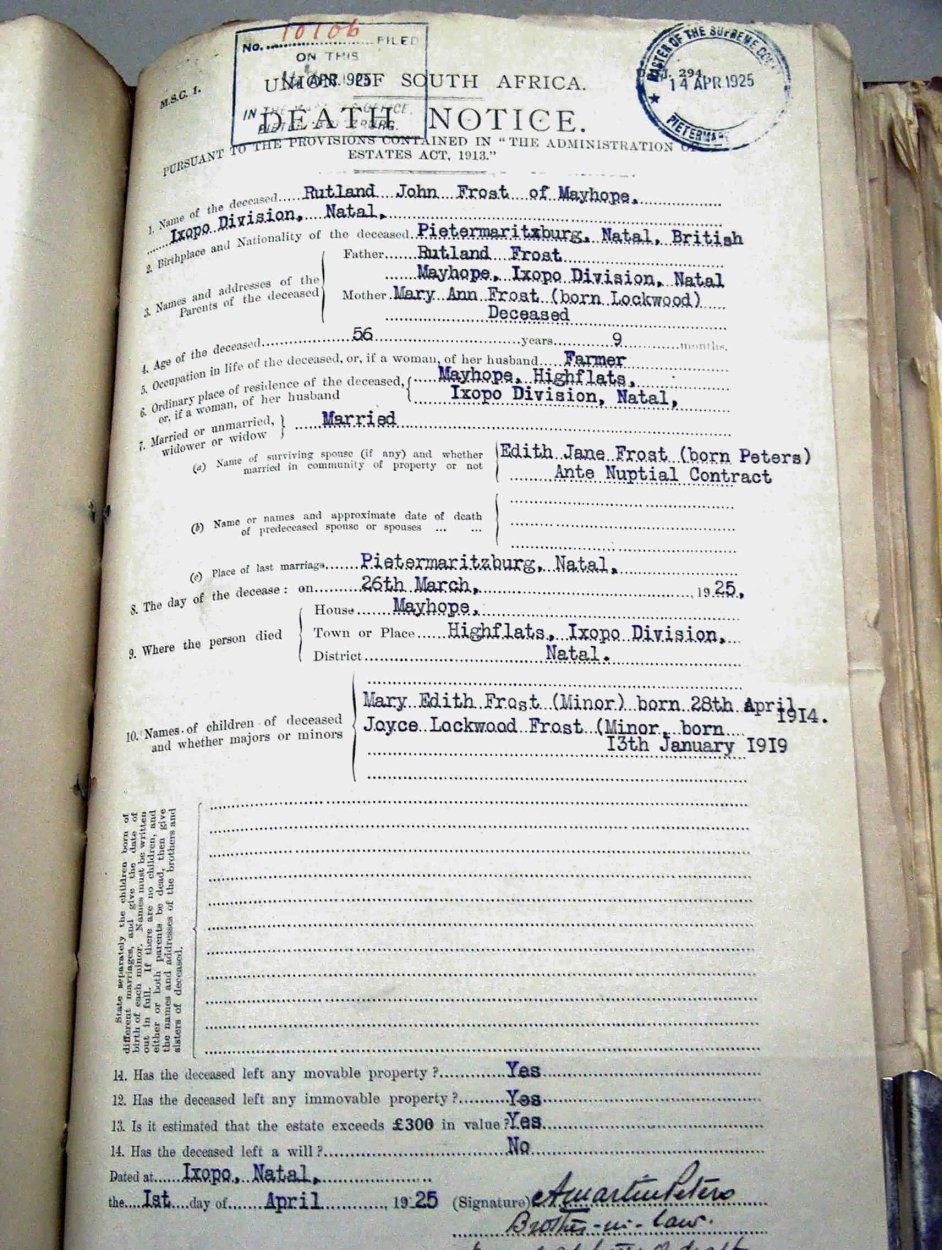 No. 10106 FILED
ON THIS
APR. 1925
IN THE MASTER'S OFFICE
PIETERMARITZBURG.
MASTER OF THE SUPREME COURT
14 APR 1925
PIETERMAR
294
M.S.C. 1.
UNION OF SOUTH AFRICA.
DEATH NOTICE.
PURSUANT TO THE PROVISIONS CONTAINED IN "THE ADMINISTRATION OF
ESTATES ACT, 1913."
1. Name of the deceased Rutland John Frost of Mayhope,
Ixopo Division, Natal,
2. Birthplace and Nationality of the deceased Pietermaritzburg, Natal, British
3. Names and addresses of the Parents of the deceased
Father Rutland Frost
Mayhope, Ixopo Division, Natal
Mother Mary Ann Frost (born Lockwood)
Deceased
4. Age of the deceased 56 years 9 months.
5. Occupation in life of the deceased, or, if a woman, of her husband Farmer
6. Ordinary place of residence of the deceased, Mayhope, Highflats,
or, if a woman, of her husband Ixopo Division, Natal,
7. Married or unmarried, widower or widow Married
(a) Name of surviving spouse (if any) and whether Edith Jane Frost (born Peters)
married in community of property or not Ante Nuptial Contract
(b) Name or names and approximate date of death
of predeceased spouse or spouses ... ...
(c) Place of last marriage Pietermaritzburg, Natal,
8. The day of the decease: on 26th March, 1925,
9. Where the person died
House Mayhope,
Town or Place Highflats, Ixopo Division,
District Natal.
10. Names of children of deceased
and whether majors or minors
Mary Edith Frost (Minor) born 28th April
1914.
Joyce Lockwood Frost (Minor, born
13th January 1919
State separately the children born of
different marriages, and give the date of
birth of each minor. Names must be written
out in full. If there are no children, and
either or both parents be dead, then give
the names and addresses of the brothers and
sisters of deceased.
11. Has the deceased left any movable property? Yes
12. Has the deceased left any immovable property? Yes
13. Is it estimated that the estate exceeds £300 in value? Yes
14. Has the deceased left a will? No
Dated at Ixopo, Natal,
the Ist day of April 1925 (Signature) A Martin Peters
Brother-in-law.